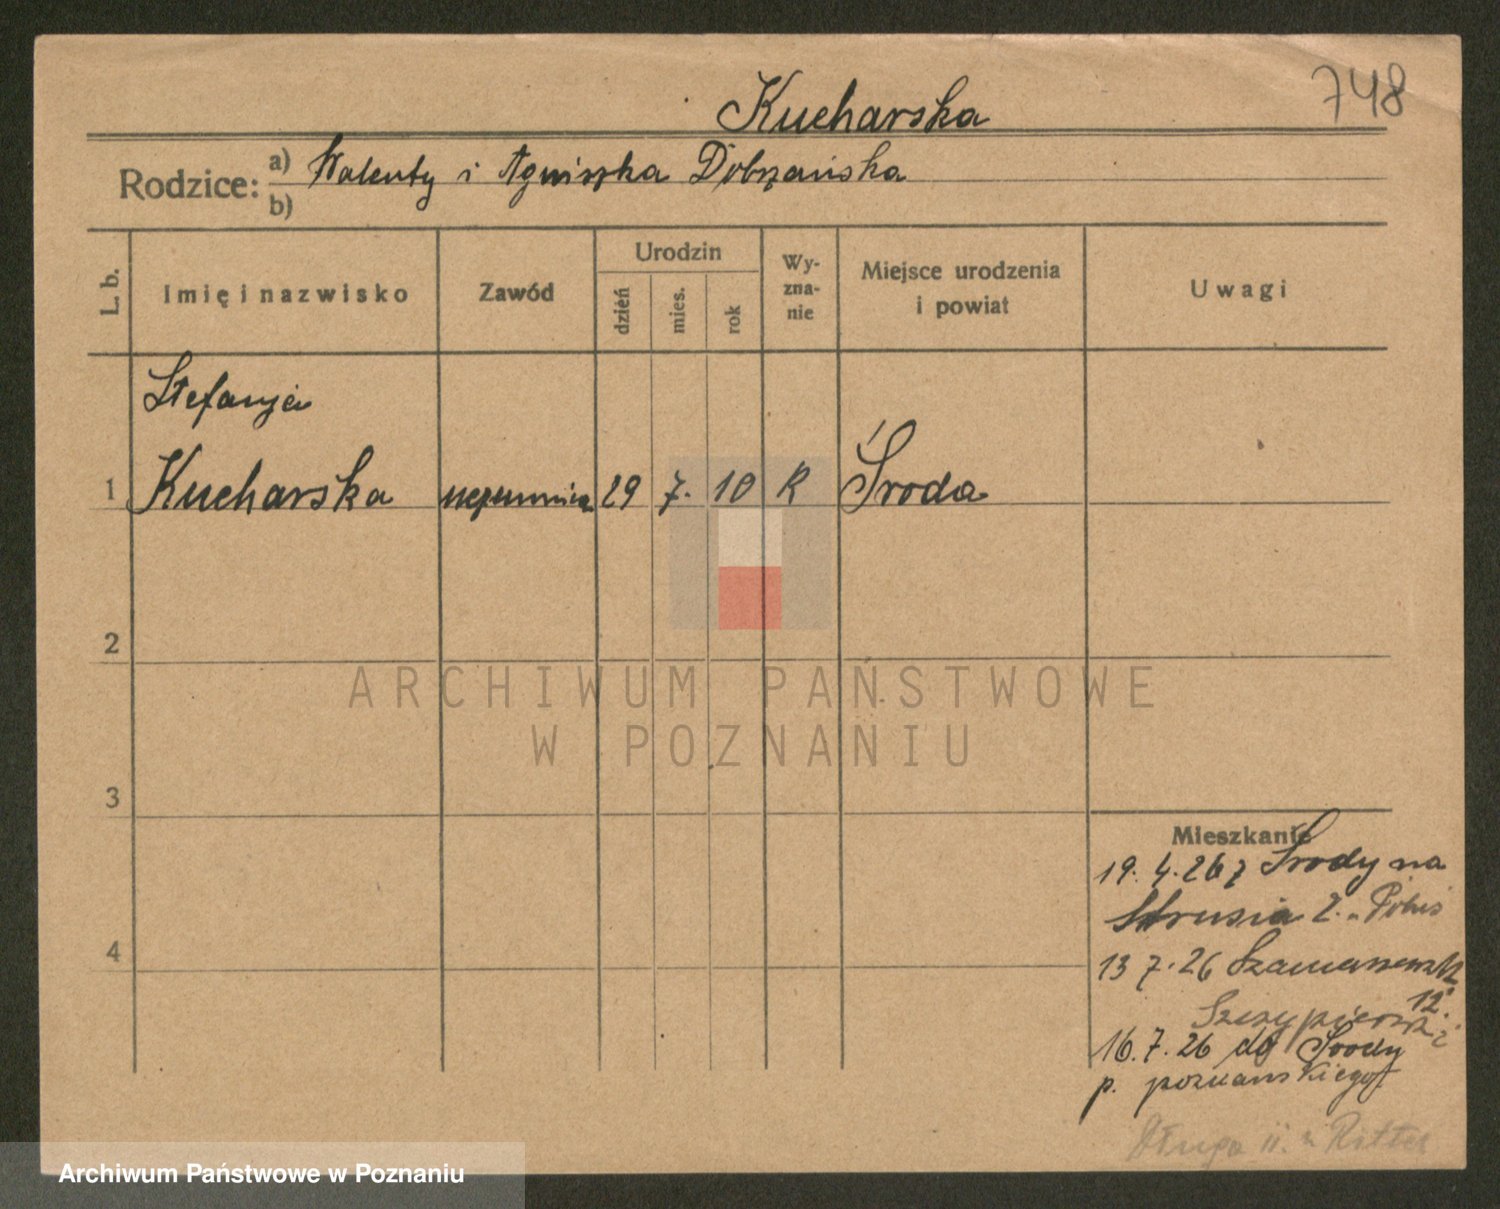 748
Kucharska
Rodzice: a) Walenty i Agniszka Dobrzańska
b)
L. b.
Imię i nazwisko
Zawód
Urodzin
dzień
mies.
rok
Wy-
zna-
nie
Miejsce urodzenia
i powiat
Uwagi
Stefanja
1 Kucharska uczennica 29 7. 10 R Środa
2
3
4
ARCHIWUM PAŃSTWOWE
W POZNANIU
Mieszkanie
19. 4. 26 z Środy na
Strusia 2.
13 7. 26
12.
16. 7. 26 do Środy
p. poznańskiego
Długa 11. Ritter
Archiwum Państwowe w Poznaniu